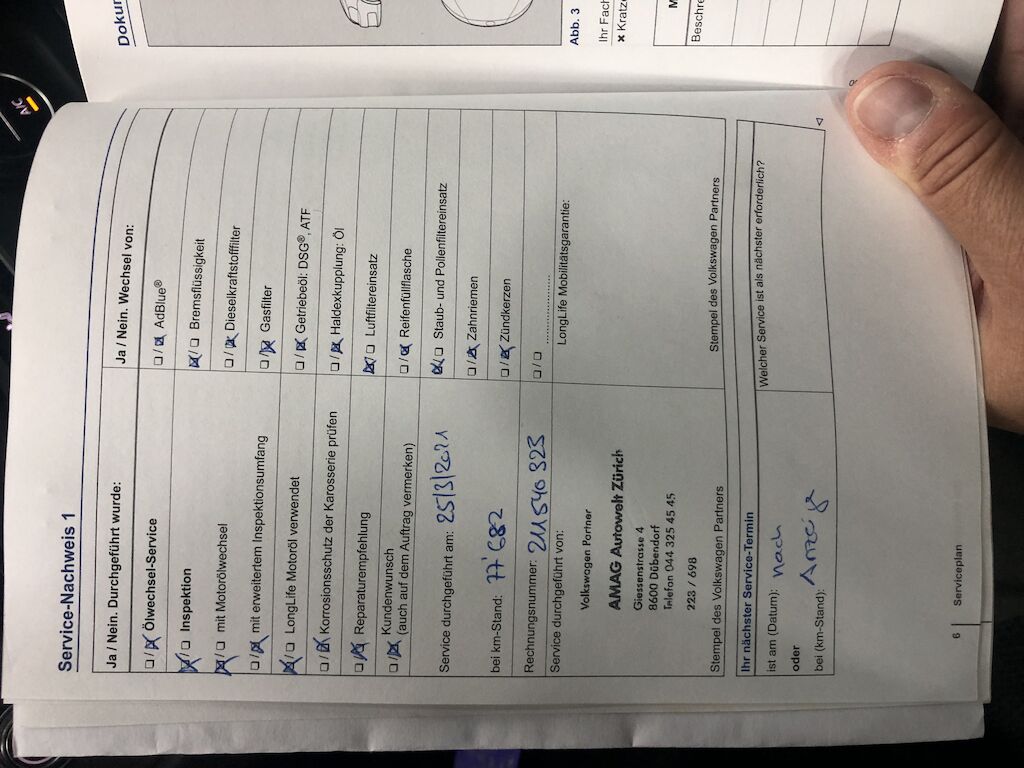 Service-Nachweis 1
Ja / Nein. Durchgeführt wurde:
☐ / ☒ Ölwechsel-Service
☒ / ☐ Inspektion
☒ / ☐ mit Motorölwechsel
☐ / ☒ mit erweitertem Inspektionsumfang
☒ / ☐ LongLife Motoröl verwendet
☐ / ☒ Korrosionsschutz der Karosserie prüfen
☐ / ☒ Reparaturempfehlung
☐ / ☒ Kundenwunsch
(auch auf dem Auftrag vermerken)
Service durchgeführt am: 25/3/2021
bei km-Stand: 77'682
Rechnungsnummer: 211 540 323
Service durchgeführt von:
Volkswagen Partner
AMAG Autowelt Zürich
Giessenstrasse 4
8600 Dübendorf
Telefon 044 325 45 45
228 / 698
Stempel des Volkswagen Partners
Ja / Nein. Wechsel von:
☐ / ☒ AdBlue®
☒ / ☐ Bremsflüssigkeit
☐ / ☒ Dieselkraftstofffilter
☐ / ☒ Gasfilter
☐ / ☒ Getriebeöl: DSG®, ATF
☐ / ☒ Haldexkupplung: Öl
☒ / ☐ Luftfiltereinsatz
☐ / ☒ Reifenfüllflasche
☒ / ☐ Staub- und Pollenfiltereinsatz
☐ / ☒ Zahnriemen
☐ / ☒ Zündkerzen
☐ / ☐ ....................
LongLife Mobilitätsgarantie:
Stempel des Volkswagen Partners
Ihr nächster Service-Termin
ist am (Datum): nach
oder
bei (km-Stand): Anzeige
Welcher Service ist als nächster erforderlich?
6
Serviceplan
Dokum
Abb. 3
Ihr Fach
× Kratze
M
Beschre
A/C